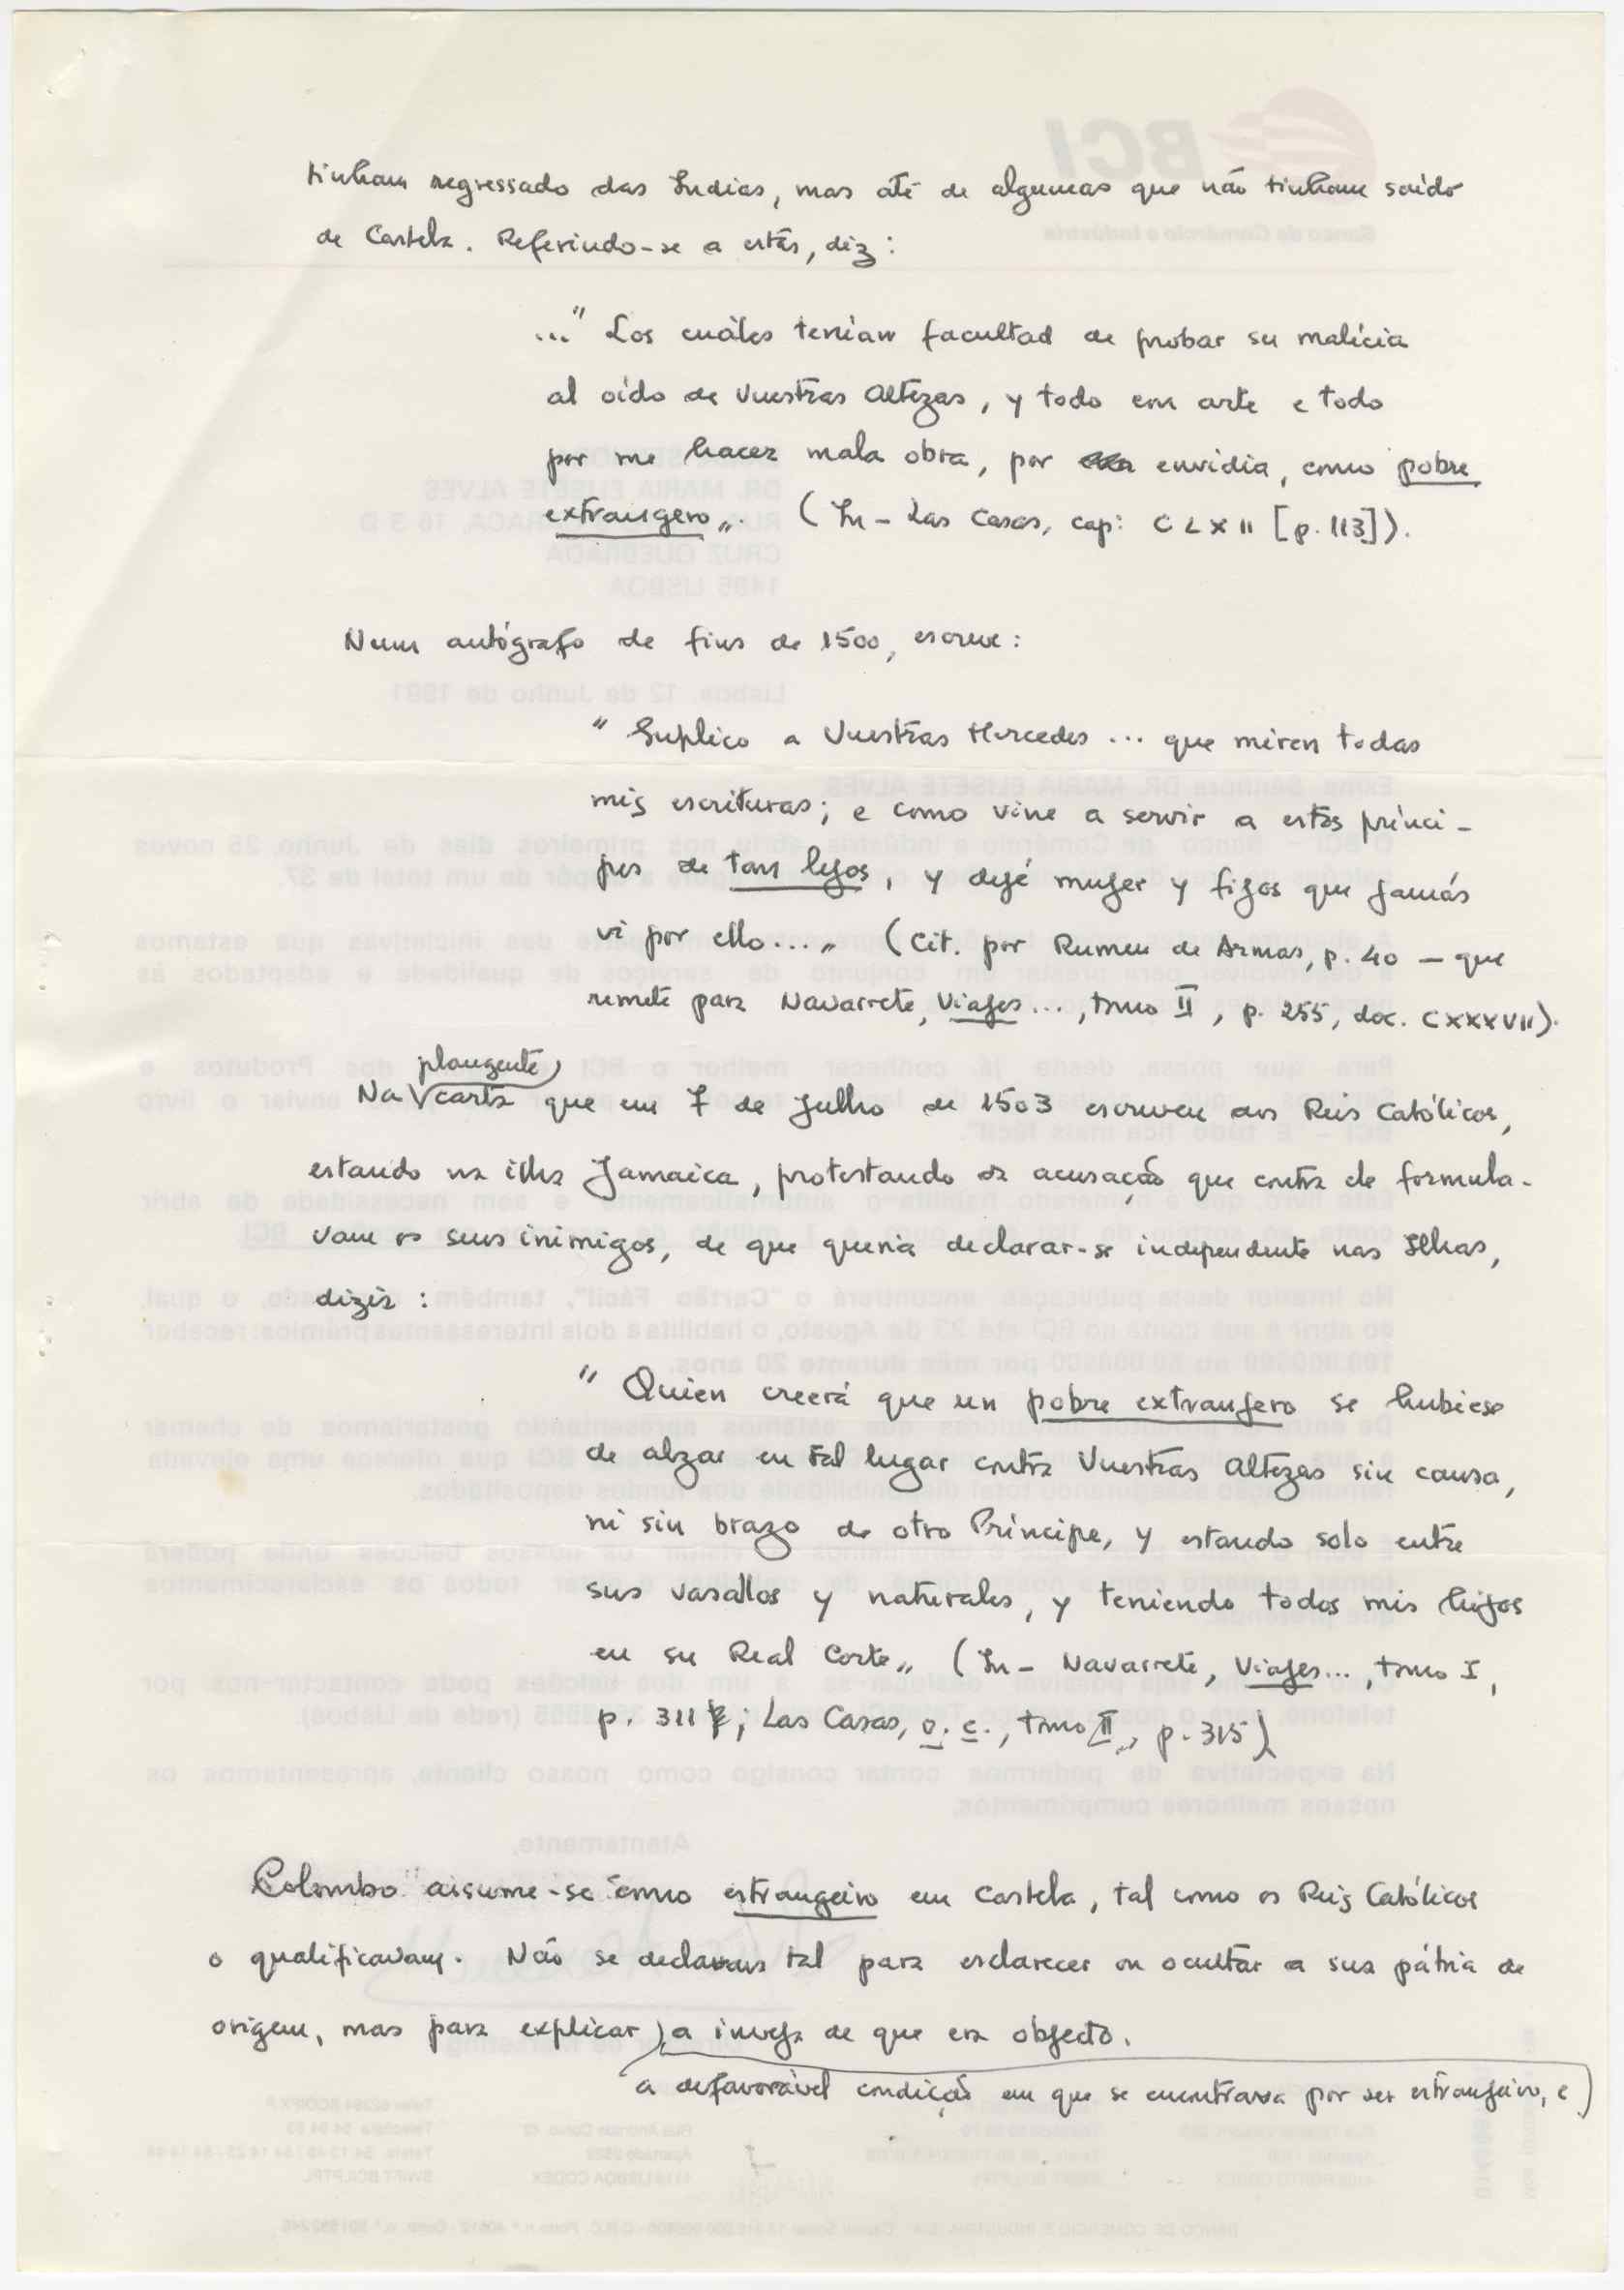 tinham regressado das Indias, mas até de algumas que não tinham saído
de Castela. Referindo-se a estas, diz:
..." Los cuáles tenían facultad de probar su malícia
al oído de Vuestras Altezas, y todo con arte e todo
por me hacer mala obra, por envidia, como pobre
extrangero„. (In - Las Casas, cap: CLXII [p. 113]).
Num autógrafo de fins de 1500, escreve:
" Suplico a Vuestras Mercedes ... que miren todas
mis escrituras; e como vine a servir a estos prínci-
pes de tan lejos, y dejé mujer y fijos que jamás
vi por ello...„ (Cit. por Rumeu de Armas, p. 40 — que
remete para Navarrete, Viajes..., tomo II, p. 255, doc. CXXXVII).
plangente
Na carta que em 7 de Julho de 1503 escreveu aos Reis Católicos,
estando na ilha Jamaica, protestando da acusação que contra ele formula-
vam os seus inimigos, de que queria declarar-se independente nas Ilhas,
dizia:
" Quien creerá que un pobre extranjero se hubiese
de alzar en tal lugar contra Vuestras Altezas sin causa,
ni sin brazo de otro Príncipe, y estando solo entre
sus vasallos y naturales, y teniendo todos mis hijos
en su Real Corte„ (In - Navarrete, Viajes..., tomo I,
p. 311; Las Casas, o. c., tomo II, p. 315)
Colombo assume-se como estrangeiro em Castela, tal como os Reis Católicos
o qualificavam. Não se declarava tal para esclarecer ou ocultar a sua pátria de
origem, mas para explicar a inveja de que era objecto.
a desfavorável condição em que se encontrava por ser estrangeiro, e